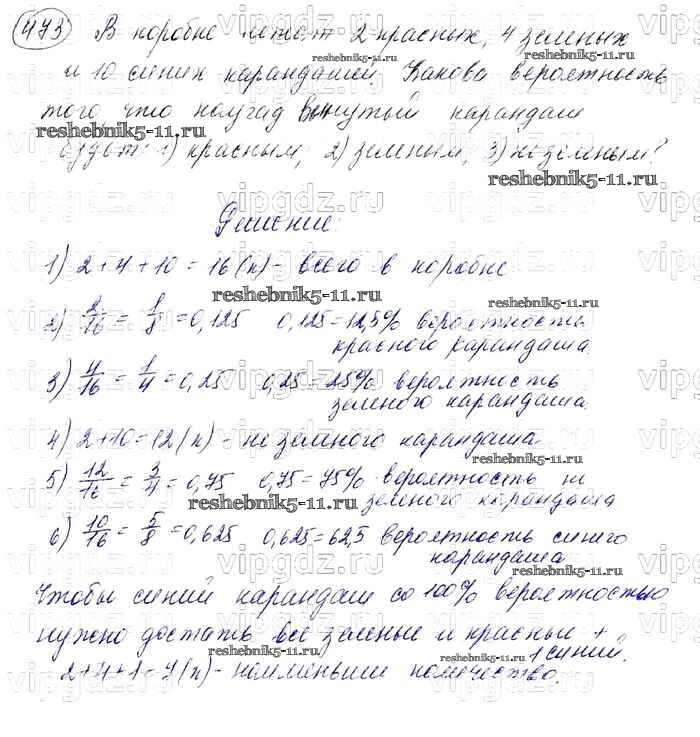 473 В коробке лежат 2 красных, 4 зеленых
и 10 синих карандашей. Какова вероятность
того, что наугад вынутый карандаш
reshebnik5-11.ru
будет: 1) красным; 2) зеленым; 3) не зеленым?
reshebnik5-11.ru
Решение:
1) 2+4+10=16(к)- всего в коробке
reshebnik5-11.ru
2) 2/16 = 1/8 = 0,125 0,125=12,5% вероятность
reshebnik5-11.ru
красного карандаша.
3) 4/16 = 1/4 = 0,25 0,25=25% вероятность
зеленого карандаша.
4) 2+10=12(к)- не зеленого карандаша.
reshebnik5-11.ru
5) 12/16 = 3/4 = 0,75 0,75=75% вероятность не
reshebnik5-11.ru
зеленого карандаша
6) 10/16 = 5/8 = 0,625 0,625=62,5 вероятность синего
карандаша
reshebnik5-11.ru
Чтобы синий карандаш со 100% вероятностью
нужно достать все зеленые и красные +
reshebnik5-11.ru
1 синий.
2+4+1=7(к)- наименьшее количество.
reshebnik5-11.ru
vipgdz.ru